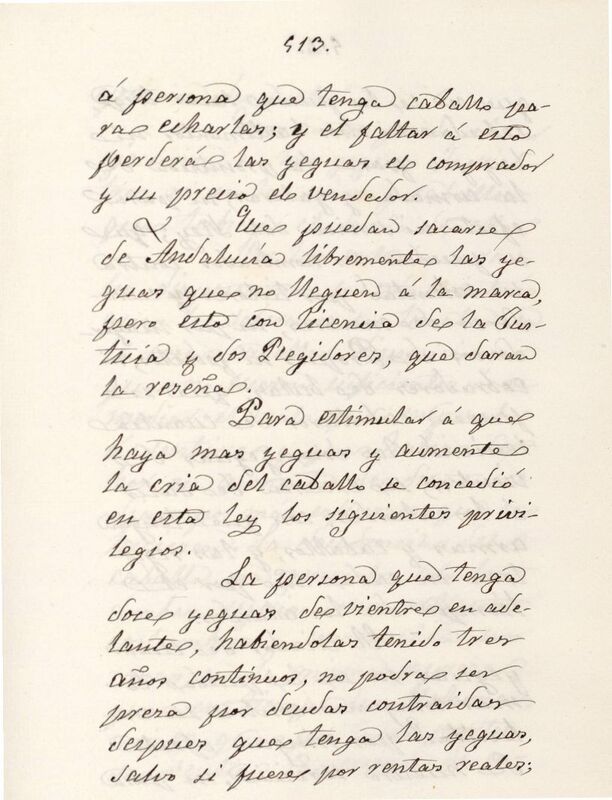 513.
á persona que tenga caballo pa-
ra echarlas; y el faltar á esto
perderá las yeguas el comprador
y su precio el vendedor.
Que puedan sacarse
de Andalucía libremente las ye-
guas que no lleguen á la marca,
pero esto con licencia de la Jus-
ticia y dos Regidores, que daran
la reseña.
Para estimular á que
haya mas yeguas y aumente
la cria del caballo se concedió
en esta ley los siguientes privi-
legios.
La persona que tenga
doce yeguas de vientre en ade-
lante, habiendolas tenido tres
años continuos, no podra ser
presa por deudas contraidas
despues que tenga las yeguas,
salvo si fuere por rentas reales;